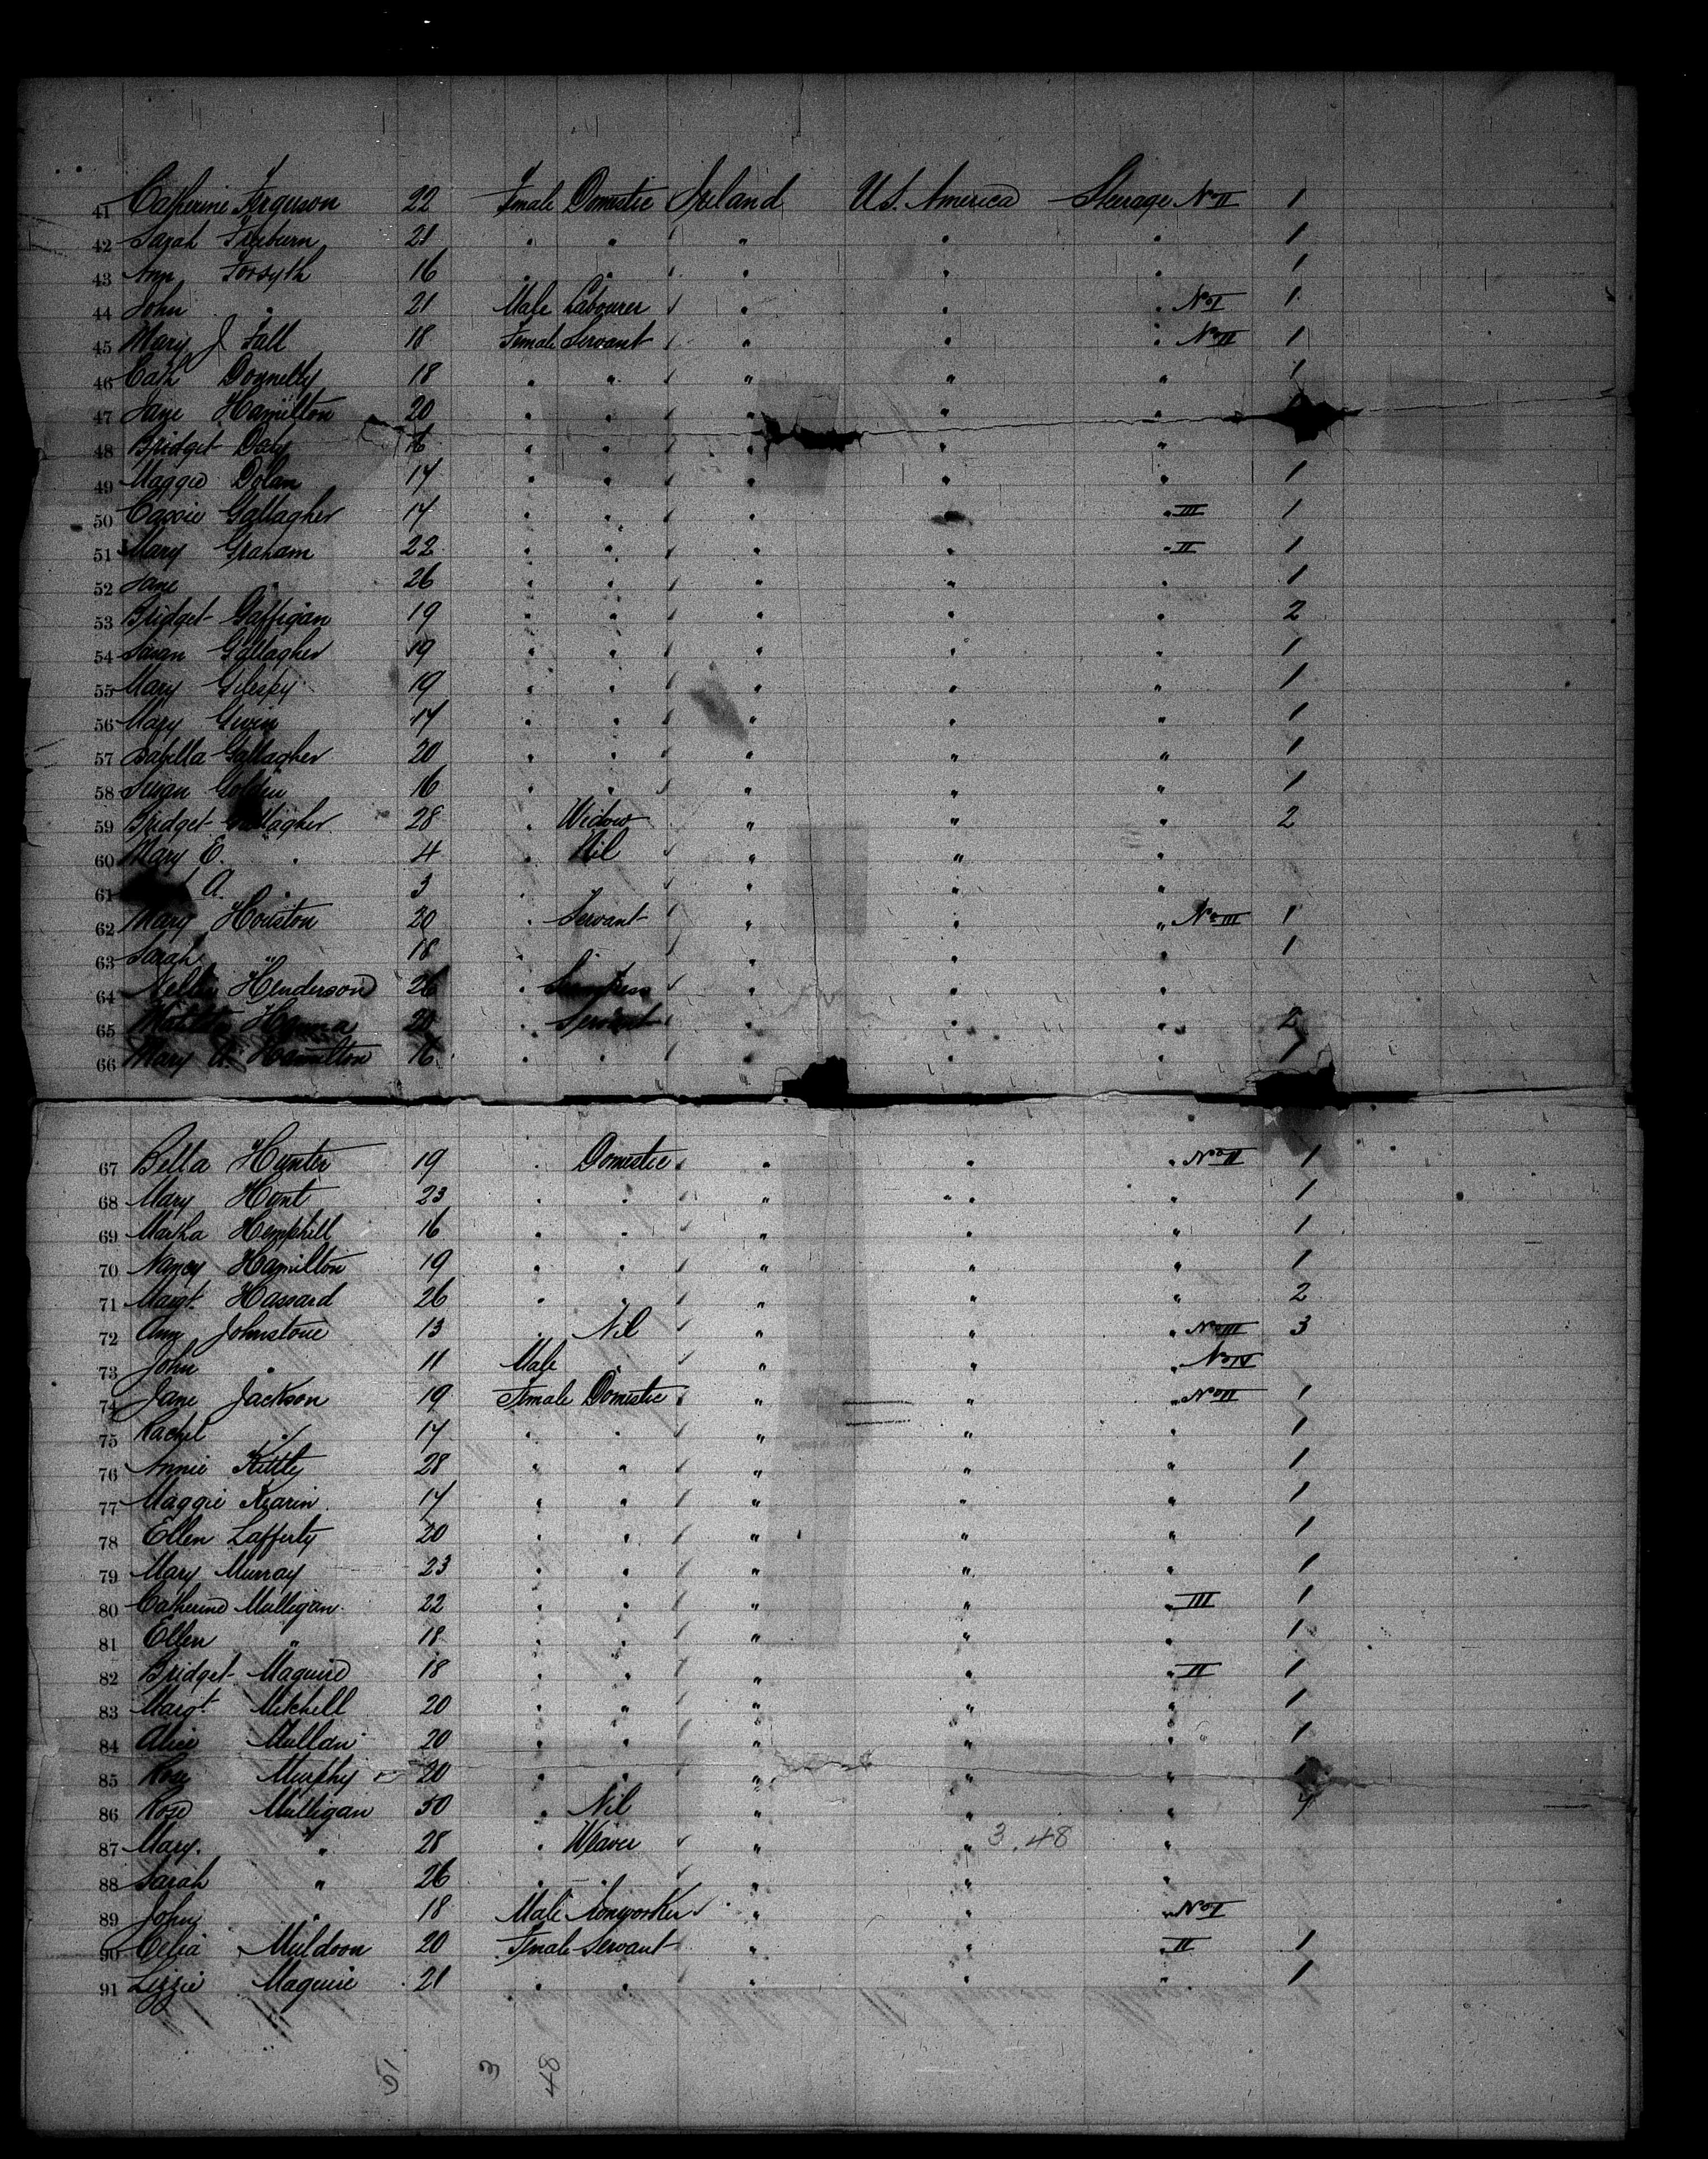 41 Catherine Ferguson 22 Female Domestic Ireland U.S. America Steerage No II 1
42 Sarah Freeburn 21 " " " " " 1
43 Ann Forsyth 16 " " " " " 1
44 John " 21 Male Labourer " " " No I 1
45 Mary J Fall 18 Female Servant " " " No II 1
46 Cath Donnelly 18 " " " " " 1
47 Jane Hamilton 20 " " " " "
48 Bridget Daly 16 " " " " "
49 Maggie Dolan 17 " " " " " 1
50 Cassie Gallagher 17 " " " " " III 1
51 Mary Graham 22 " " " " " II 1
52 Jane " 26 " " " " " 1
53 Bridget Gaffigan 19 " " " " " 2
54 Susan Gallagher 19 " " " " " 1
55 Mary Gilespy 19 " " " " " 1
56 Mary Gwin 17 " " " " " 1
57 Isabella Gallagher 20 " " " " " 1
58 Susan Golden 16 " " " " " 1
59 Bridget Gallagher 28 " Widow " " " 2
60 Mary E. " 4 " Nil " " "
61 A. " 3 " " " "
62 Mary Houston 20 " Servant " " " No III 1
63 Sarah " 18 " " " " 1
64 Nellie Henderson 26 " " " "
65 Hanna 20 " Servant " " " 2
66 Mary A. Hamilton 16 " " " " " 1
67 Bella Hunter 19 " Domestic " " " No II 1
68 Mary Hunt 23 " " " " " 1
69 Martha Hemphill 16 " " " " " 1
70 Nancy Hamilton 19 " " " " " 1
71 Margt. Hassard 26 " " " " " 2
72 Ann Johnstone 13 " Nil " " " No III 3
73 John " 11 Male " " " " No IV
74 Jane Jackson 19 Female Domestic " " " No II 1
75 Rachel " 17 " " " " " 1
76 Annie Kitty 28 " " " " " 1
77 Maggie Kearin 17 " " " " " 1
78 Ellen Lafferty 20 " " " " " 1
79 Mary Murray 23 " " " " " 1
80 Catherine Mulligan 22 " " " " " III 1
81 Ellen " 18 " " " " " 1
82 Bridget Maguire 18 " " " " " II 1
83 Margt. Mitchell 20 " " " " " 1
84 Alice Mullan 20 " " " " " 1
85 Rose Murphy 20 " " " " "
86 Rose Mulligan 50 " Nil " " "
87 Mary. " 28 " Weaver " " 3.48 "
88 Sarah " 26 " " " " "
89 John " 18 Male Ironworker " " " No I
90 Celia Muldoon 20 Female Servant " " " II 1
91 Lizzie Maguire 21 " " " " " 1
51 3 48